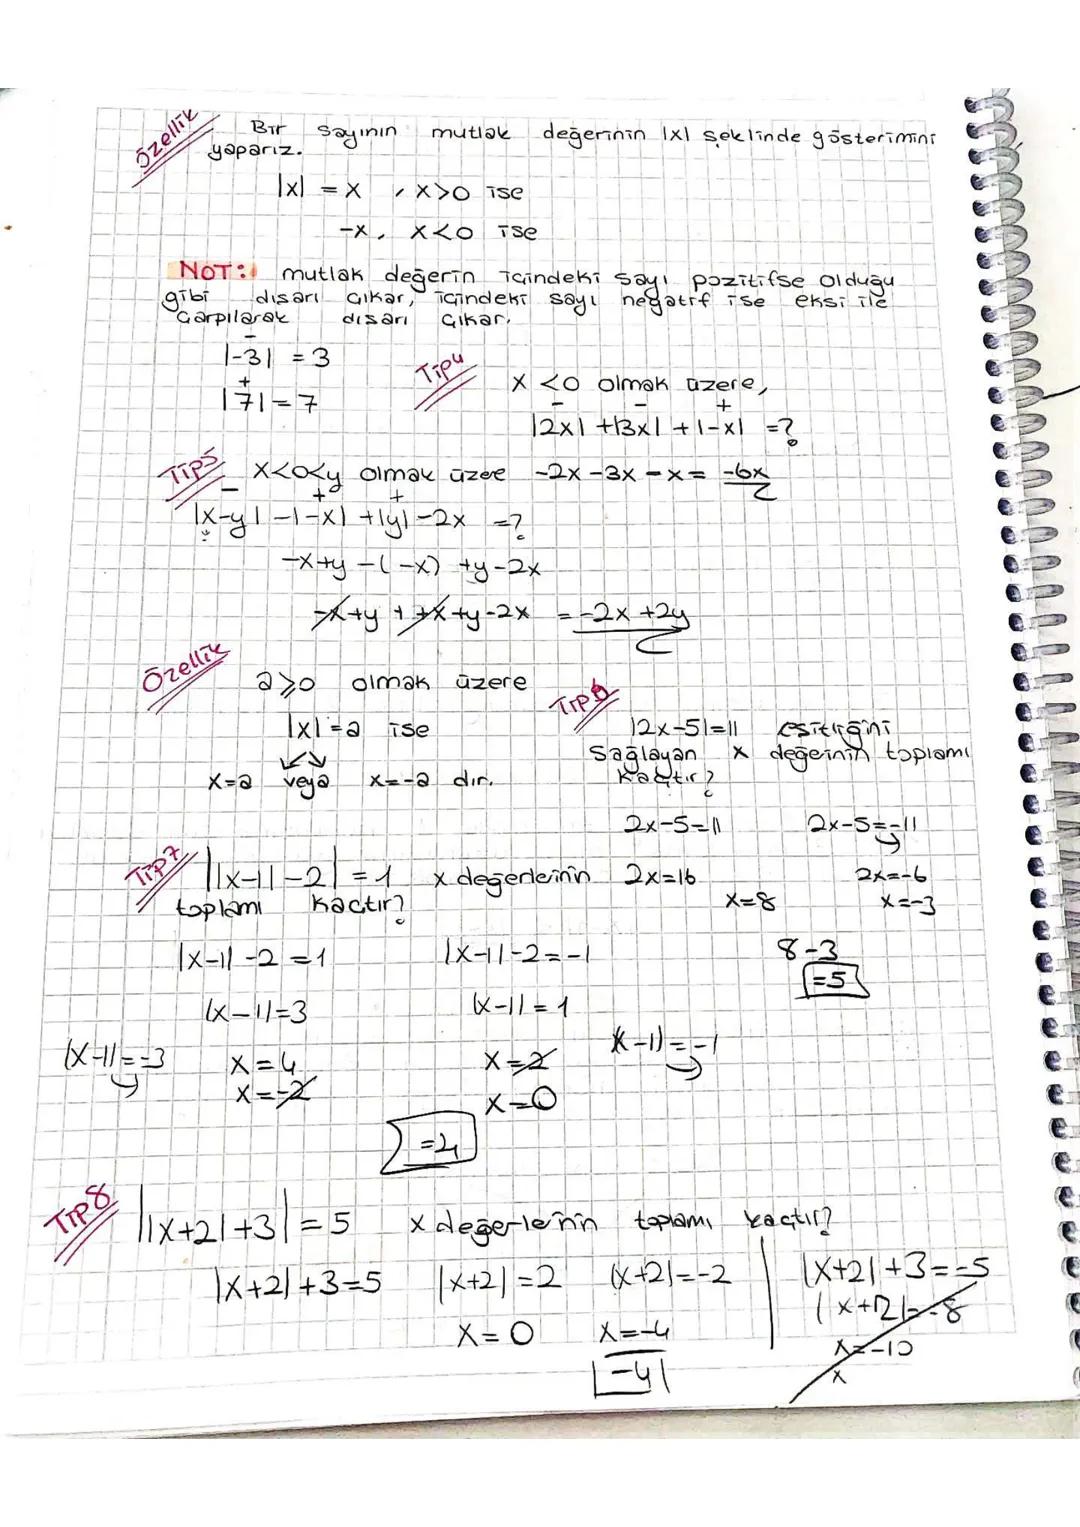 Özellik
Bir sayının mutlak değerinin |x| şeklinde gösterimini
yaparız.
|x| = x , x>0 ise
-x, x<0 ise
NOT: mutlak değerin içindeki sayı pozitifse olduğu
gibi dışarı çıkar, içindeki sayı negatif ise eksi ile
çarpılarak dışarı çıkar.
|-3| = 3
|7| = 7
Tip4
x <0 olmak üzere,
|2x| +|3x| + |-x| =?
-2x -3x - x = -6x
Tip5 x<0<y olmak üzere
|x-y| - |-x| + |y| -2x =?
-x+y -(-x) +y -2x
-x+y + +x +y -2x = -2x +2y
Özellik
a⩾0 olmak üzere
|x| = a ise
x=a veya x=-a dır.
Tip6
|2x-5|=11 eşitliğini
Sağlayan x değeinin toplamı
kaçtır?
2x-5=11 2x-5=-11
2x=16 2x=-6
x=8 x=-3
8-3
=5
Tip7 ||x-1| -2| = 1 x değerleinin
toplamı kaçtır?
|x-1| -2 =1 |x-1| -2 = -1
|x-1|=3 |x-1| = 1
|x-1|=-3 x=4 x=2 |x-1|=-1
x=-2 x=0
=4
Tip8 ||x+2| +3| = 5 x değerleinin toplamı kaçtır?
|x+2| +3=5 |x+2| =2 |x+2|=-2 |x+2| +3=-5
x=0 x=-4 |x+2|=-8
-4 x=-10
x